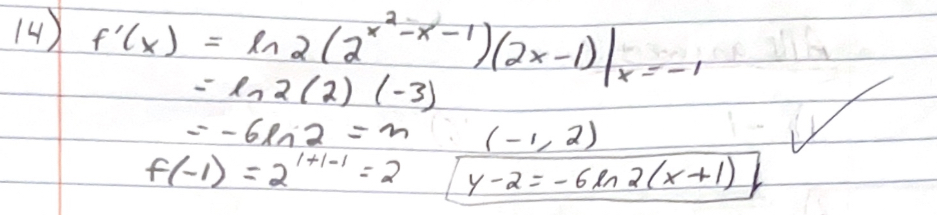 14) f'(x) = ln2(2^{x^2-x-1})(2x-1)|_{x=-1}
= ln2(2)(-3)
= -6ln2 = m (-1, 2)
f(-1) = 2^{1+1-1} = 2 y-2 = -6ln2(x+1)